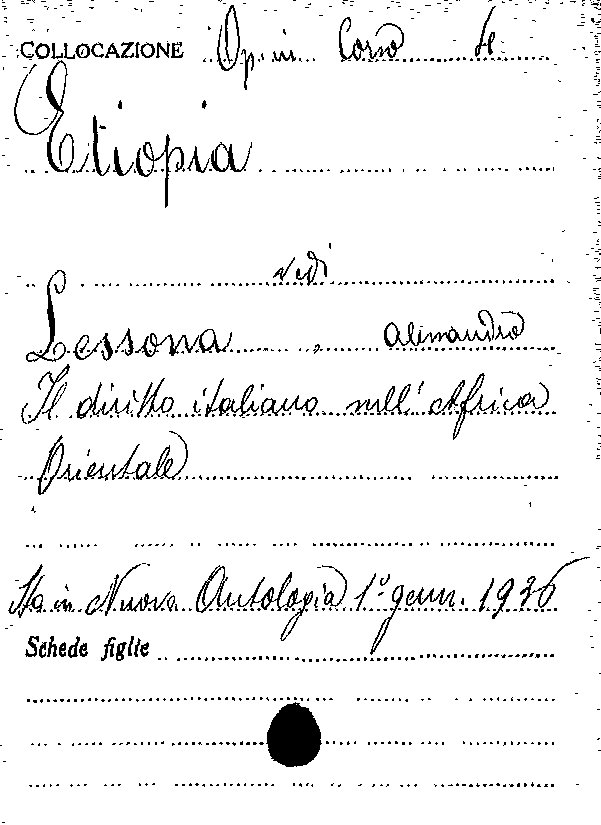 COLLOCAZIONE Op. in Corso 4.
Etiopia
vedi
Lessona, Alessandro
Il diritto italiano nell'Africa
Orientale
Sta in Nuova Antologia 1° genn. 1936
Schede figlie